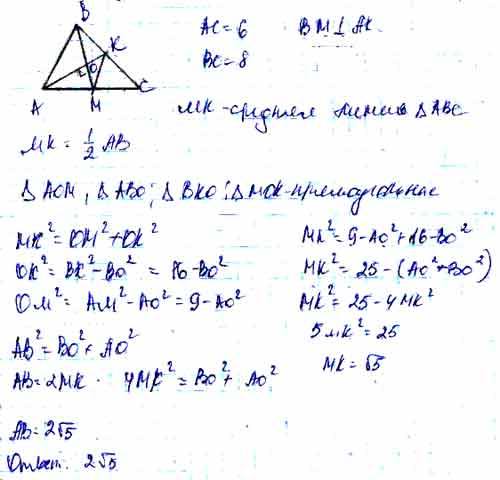 B
K
O
A
M
C
AC = 6 BM ⊥ AK.
BC = 8
MK - средняя линия △ABC
MK = 1/2 AB
△AOM, △ABO, △BKO, △MOK - прямоугольные
MK² = OM² + OK²
OK² = BK² - BO² = 16 - BO²
OM² = AM² - AO² = 9 - AO²
AB² = BO² + AO²
AB = 2MK. 4MK² = BO² + AO²
AB = 2√5
Ответ. 2√5
MK² = 9 - AO² + 16 - BO²
MK² = 25 - (AO² + BO²)
MK² = 25 - 4MK²
5MK² = 25
MK = √5